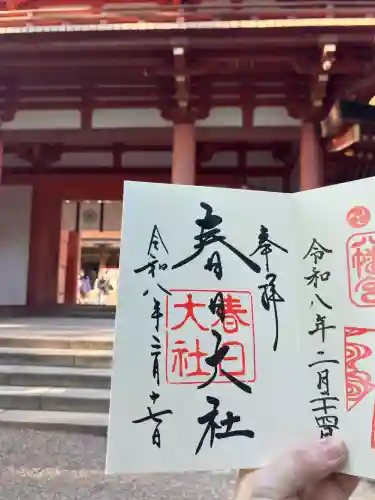 令和八年二月二十四日
八幡宮
奉拝
春日大社
春日
大社
令和八年三月十七日